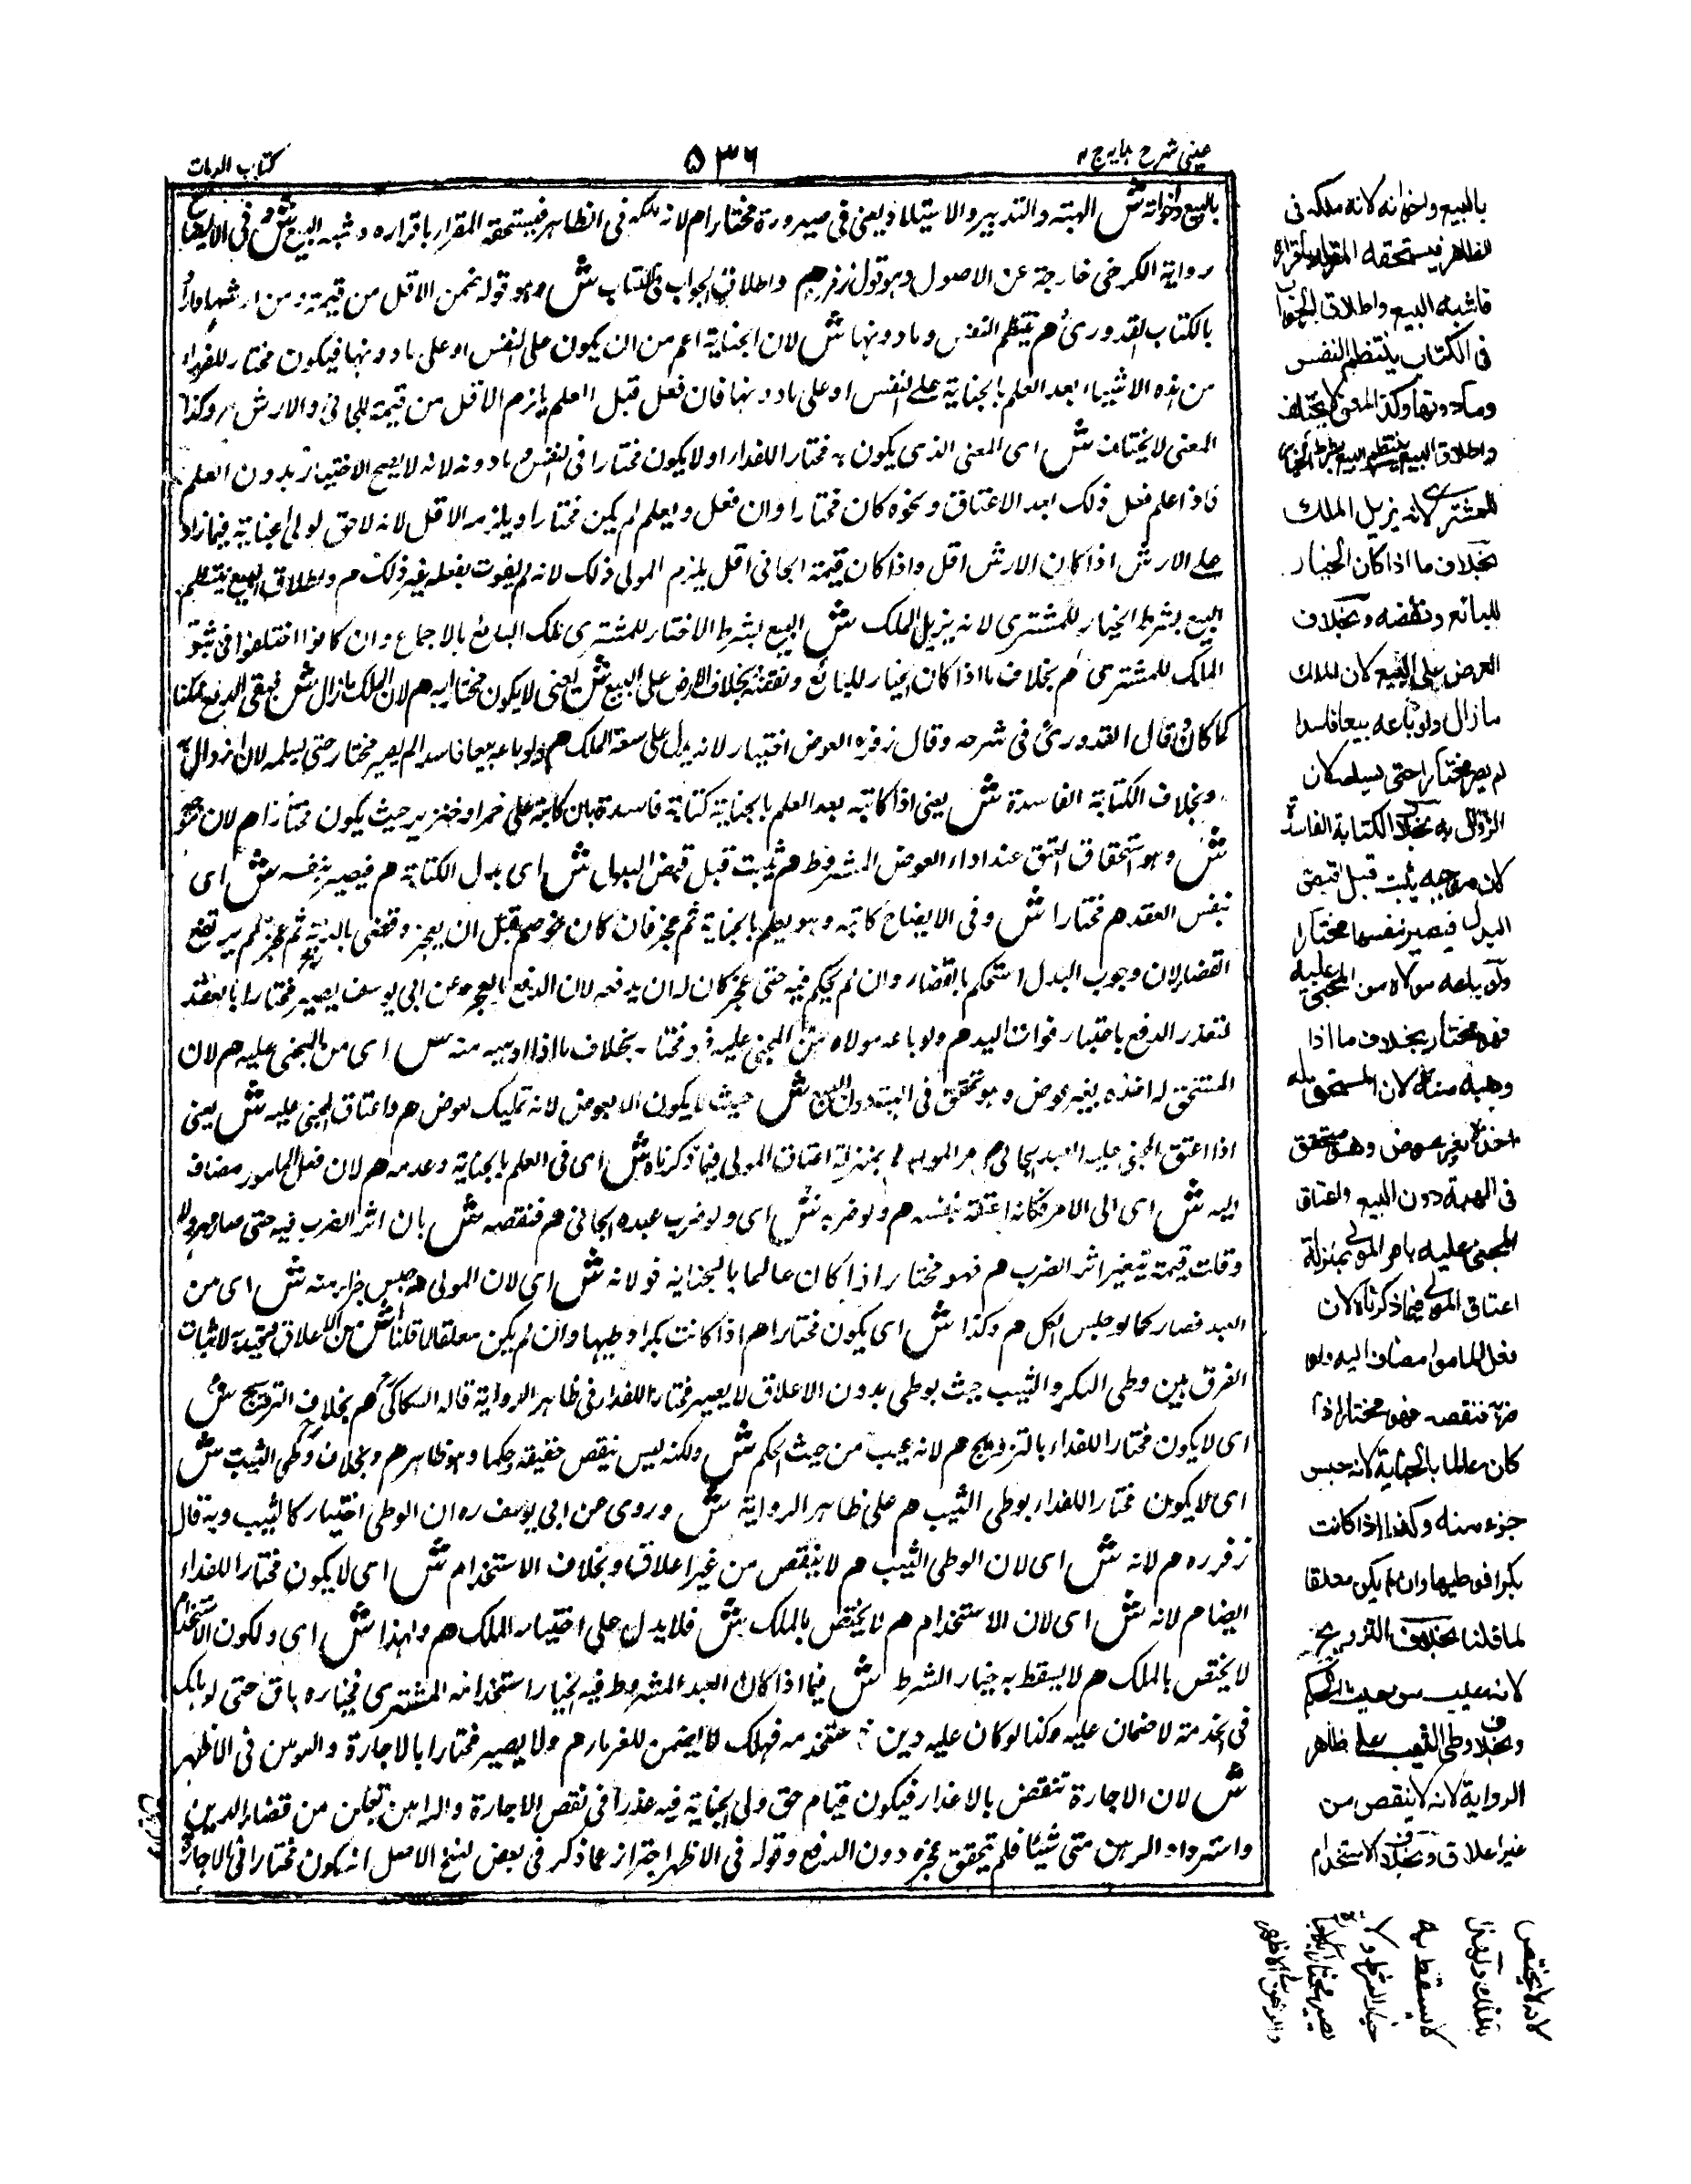 عینی شرح ہدایہ ج ۴
۵۳۶
کتاب الدیات
بالبیع واخواته ش الهبته والتدبیر والاستیلاد یعنی فی صیرورة مختارا م لانه ملکه فی الظاهر فیستحقه المقر له باقراره وشبه البیع ش وفی الایضاح
روایة الکرخی خارجة عن الاصول وهو قول زفر رح هم واطلاق الجواب فی الکتاب ش وهو قوله ضمن الاقل من قیمته ومن ارشها واراد
بالکتاب القدوری هم ینتظم النفس وما دونها ش لان الجنایة اعم من ان یکون علی النفس او علی ما دونها فیکون مختار للفداء
من هذه الاشیاء بعد العلم بالجنایة علی النفس او علی ما دونها فان فعل قبل العلم یلزم الاقل من قیمته للجانی والارش م وکذا
المعنی لا یختلف ش ای المعنی الذی یکون به مختارا للفداء او لا یکون مختارا فی النفس وما دونه لانه لا یصح الاختیار بدون العلم
فاذا علم فعل ذلک بعد الاعتاق ونحوه کان مختارا وان فعل ولم یعلم لم یکن مختارا ویلزمه الاقل لانه لاحق لولی الجنایة فیما زاد
علی الارش اذا کان الارش اقل واذا کان قیمة الجانی اقل یلزم المولی ذلک لانه لم یفوت بفعله غیر ذلک م واطلاق البیع ینتظم
البیع بشرط الخیار للمشتری لانه یزیل الملک ش البیع بشرط الاختار للمشتری ملک البائع بالاجماع وان کانوا اختلفوا فی ثبوت
الملک للمشتری هم بخلاف ما اذا کان الخیار للبائع ونقضه بخلاف العرض علی البیع ش یعنی لا یکون مختارا به هم لان الملک ما زال ش فبقی الدفع ممکنا
کما کان قال القدوری فی شرحه وقال زفر ره العرض اختیار لانه یدل علی سعة الملک هم ولو باعه بیعا فاسدا لم یصیر مختار حتی یسلمه لان الزوال به
وبخلاف الکتابة الفاسدة ش یعنی اذا کاتبه بعد العلم بالجنایة کتابة فاسدة بان کاتبه علی خمر او خنزیر حیث یکون مختارا م لان موجبه
ش وهو استحقاق العتق عند اداء العوض المشروط هم یثبت قبل قبض البدل ش ای بدل الکتابة هم فیصیر بنفسه ش ای
بنفس العقد هم مختارا ش وفی الایضاح کاتبه وهو یعلم بالجنایة ثم عجز فان کان خوصم قبل ان یعجز وقضی بالدیة ثم عجز لم یرتفع
القضاء لان وجوب البدل استحکم بالقضاء وان لم یحکم فیه حتی عجز کان له ان یدفعه لان الدفع بالعجز وعن ابی یوسف یصیر مختارا بالعقد
لتعذر الدفع باعتبار فوات الید هم ولو باعه مولاه من المجنی علیه فهو مختار بخلاف ما اذا وهبه منه ش ای من المجنی علیه هم لان
المستحق له اخذه بغیر عوض وهو متحقق فی الهبته دون البیع ش حیث لا یکون الا بعوض لانه تملیک بعوض هم واعتاق المجنی علیه ش یعنی
اذا اعتق المجنی علیه العبد الجانی هم بامر المولی بمنزلة اعتاق المولی فیما ذکرناه ش ای فی العلم بالجنایة وعدمه هم لان فعل المامور مضاف
الیه ش ای الی الامر فکانه اعتقه بنفسه هم ولو ضربه ش ای ولو ضرب عبده الجانی هم فنقصه ش بان اثر الضرب فیه حتی صار مهزولا
وقلت قیمته بتغیر اثر الضرب هم فهو مختار اذا کان عالما بالجنایه فو لانه ش ای لان المولی هم حبس جزء منه ش ای من
العبد فصار کما لو حبس الکل هم وکذا ش ای یکون مختارا هم اذا کانت بکرا وطیها وان لم یکن معلقا لما قلنا ش من الاعلاق بتحدیه لاثبات
الفرق بین وطی البکر والثیب حیث بوطی بدون الاعلاق لا یصیر مختارا للفداء فی ظاهر الروایة قاله السکاکی هم بخلاف التزویج ش
ای لا یکون مختارا للفداء بالتزویج هم لانه عیب من حیث الحکم ش ولکنه لیس ینقص حقیقه وحکما وهو ظاهر هم وبخلاف وطی الثیب ش
ای لا یکون مختارا للفداء بوطی الثیب هم علی ظاهر الروایة ش وروی عن ابی یوسف ره ان الوطی اختیار کالثیب وبه قال
زفر ره هم لانه ش ای لان الوطی الثیب هم لا ینقص من غیر اعلاق وبخلاف الاستخدام ش ای لا یکون مختارا للفداء
ایضا م لانه ش ای لان الاستخدام هم لا یختص بالملک ش فلا یدل علی اختیار الملک هم ولهذا ش ای ولکون الاستخدام
لا یختص بالملک هم لا یسقط به خیار الشرط ش فیما اذا کان العبد المشروط فیه الخیار استخدامه المشتری فخیاره باق حتی لو هلک
فی الخدمة لا ضمان علیه وکذا لو کان علیه دین فاستخدمه فهلک لا یضمن للغرماء هم ولا یصیر مختارا بالاجارة والرهن فی الاظهر
ش لان الاجارة تنقض بالاعذار فیکون قیام حق ولی الجنایة فیه عذرا فی نقض الاجارة والراهن تمکن من قضاء الدین
واسترداد الرهن متی شیئا فلم یتحقق عجزه دون الدفع وقوله فی الاظهر احتراز عما ذکر فی بعض نسخ الاصل انه یکون مختارا فی الاجارة
بالبیع واخواته لانه ملکه فی
الظاهر فیستحقه المقر له باقراره
فاشبه البیع واطلاق الجواب
فی الکتاب ینتظم النفس
وما دونها وکذا المعنی لا یختلف
واطلاق البیع ینتظم البیع بشرط الخیار
للمشتری لانه یزیل الملک
بخلاف ما اذا کان الخیار
للبائع ونقضه وبخلاف
العرض علی البیع لان الملک
ما زال ولو باعه بیعا فاسدا
لم یصر مختارا حتی یسلمه لان
الزوال به بخلاف الکتابة الفاسدة
لان موجبه یثبت قبل قبض
البدل فیصیر بنفسها مختارا
ولو باعه مولاه من المجنی علیه
فهو مختار بخلاف ما اذا
وهبه منه لان المستحق له
اخذه بغیر عوض وهو متحقق
فی الهبة دون البیع واعتاق
المجنی علیه بامر المولی بمنزلة
اعتاق المولی فیما ذکرناه لان
فعل المامور مضاف الیه ولو
ضربه فنقصه فهو مختار اذا
کان عالما بالجنایة لانه حبس
جزء منه وکذا اذا کانت
بکرا فوطیها وان لم یکن معلقا
لما قلنا بخلاف التزویج
لانه عیب من حیث الحکم
وبخلاف وطی الثیب علی ظاهر
الروایة لانه لا ینقص من
غیر اعلاق وبخلاف الاستخدام
لانه لا یختص
بالملک ولهذا
لا یسقط به
خیار الشرط ولا
یصیر مختارا بالاجارة
والرهن فی الاظهر